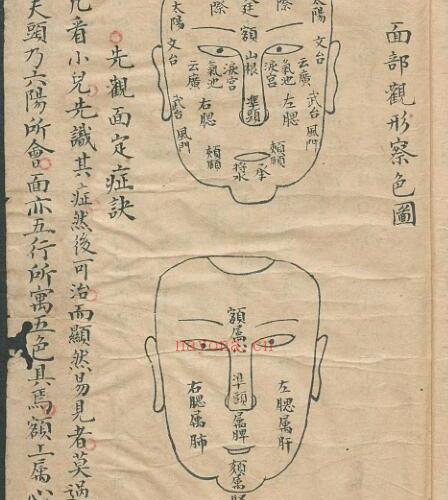 面部觀形察色圖
太陽 文台
際
廷
額
際
太陽
文台
山根
氣池
淚宮
云廣
武台
風門
準頭
左腮
右腮
承漿
額屬心
準頭屬脾
左腮屬肝
右腮屬肺
頦屬腎
先觀面定症訣
凡看小兒先識其症然後可治而顯然易見者莫過
夫頭乃六陽所會面亦五行所寓五色具焉額上屬心
nayona.cn